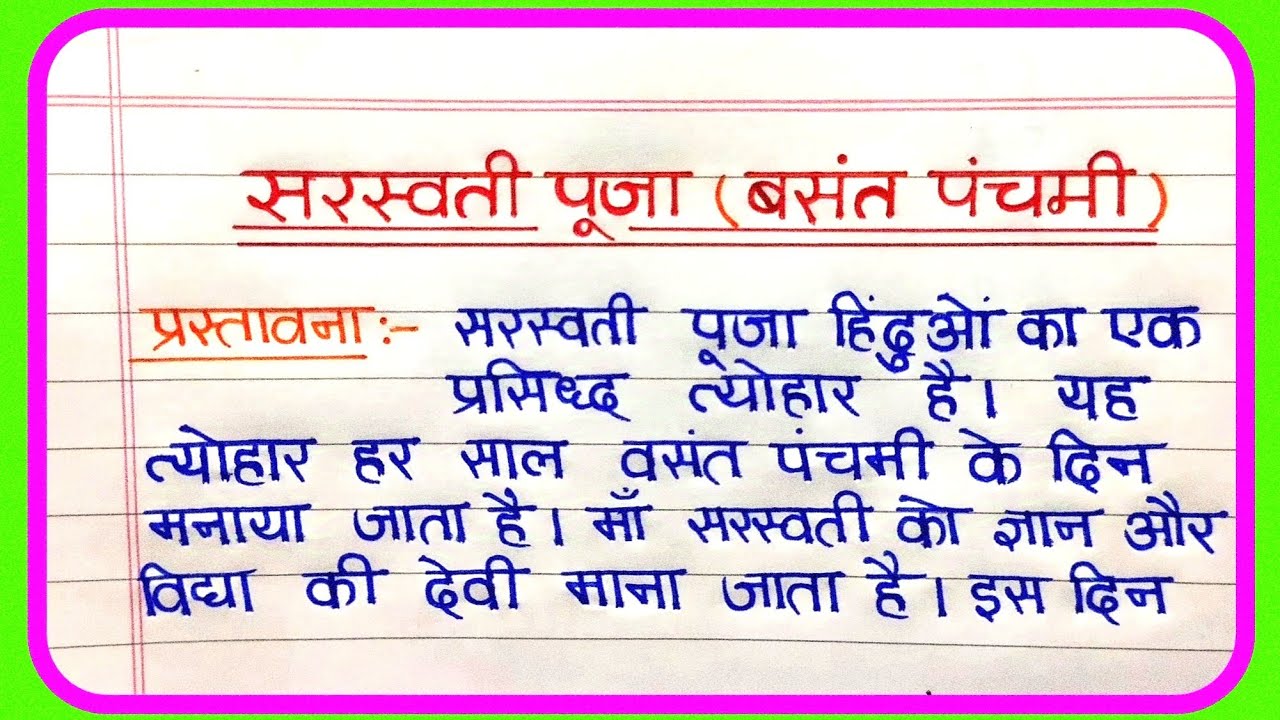 सरस्वती पूजा (बसंत पंचमी)
प्रस्तावना :- सरस्वती पूजा हिंदुओं का एक
प्रसिध्द त्योहार है। यह
त्योहार हर साल वसंत पंचमी के दिन
मनाया जाता है। माँ सरस्वती को ज्ञान और
विद्या की देवी माना जाता है। इस दिन